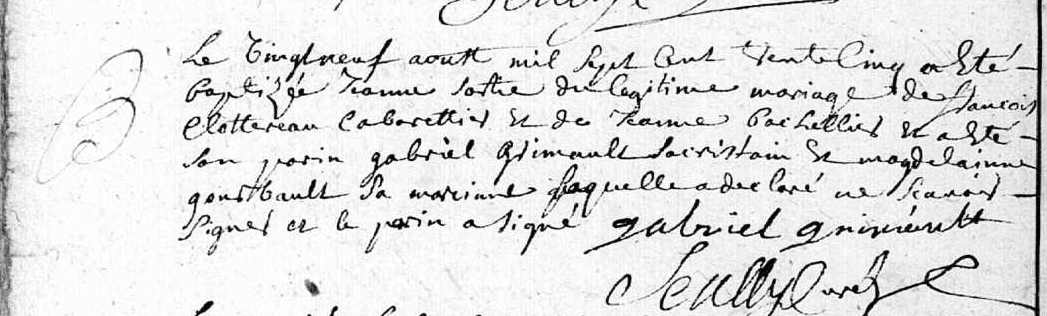 B
Le vingt neuf aoust mil sept cent trente cinq a Eté
baptizée Jeanne sortie du legitime mariage de francois
Clottereau Cabarettier Et de Jeanne bachellier Et a Eté
son parin gabriel Grimault sacristain Et magdelainne
sa marainne laquelle a declaré ne scavoir
signer et le parin a signé gabriel grimault
curé